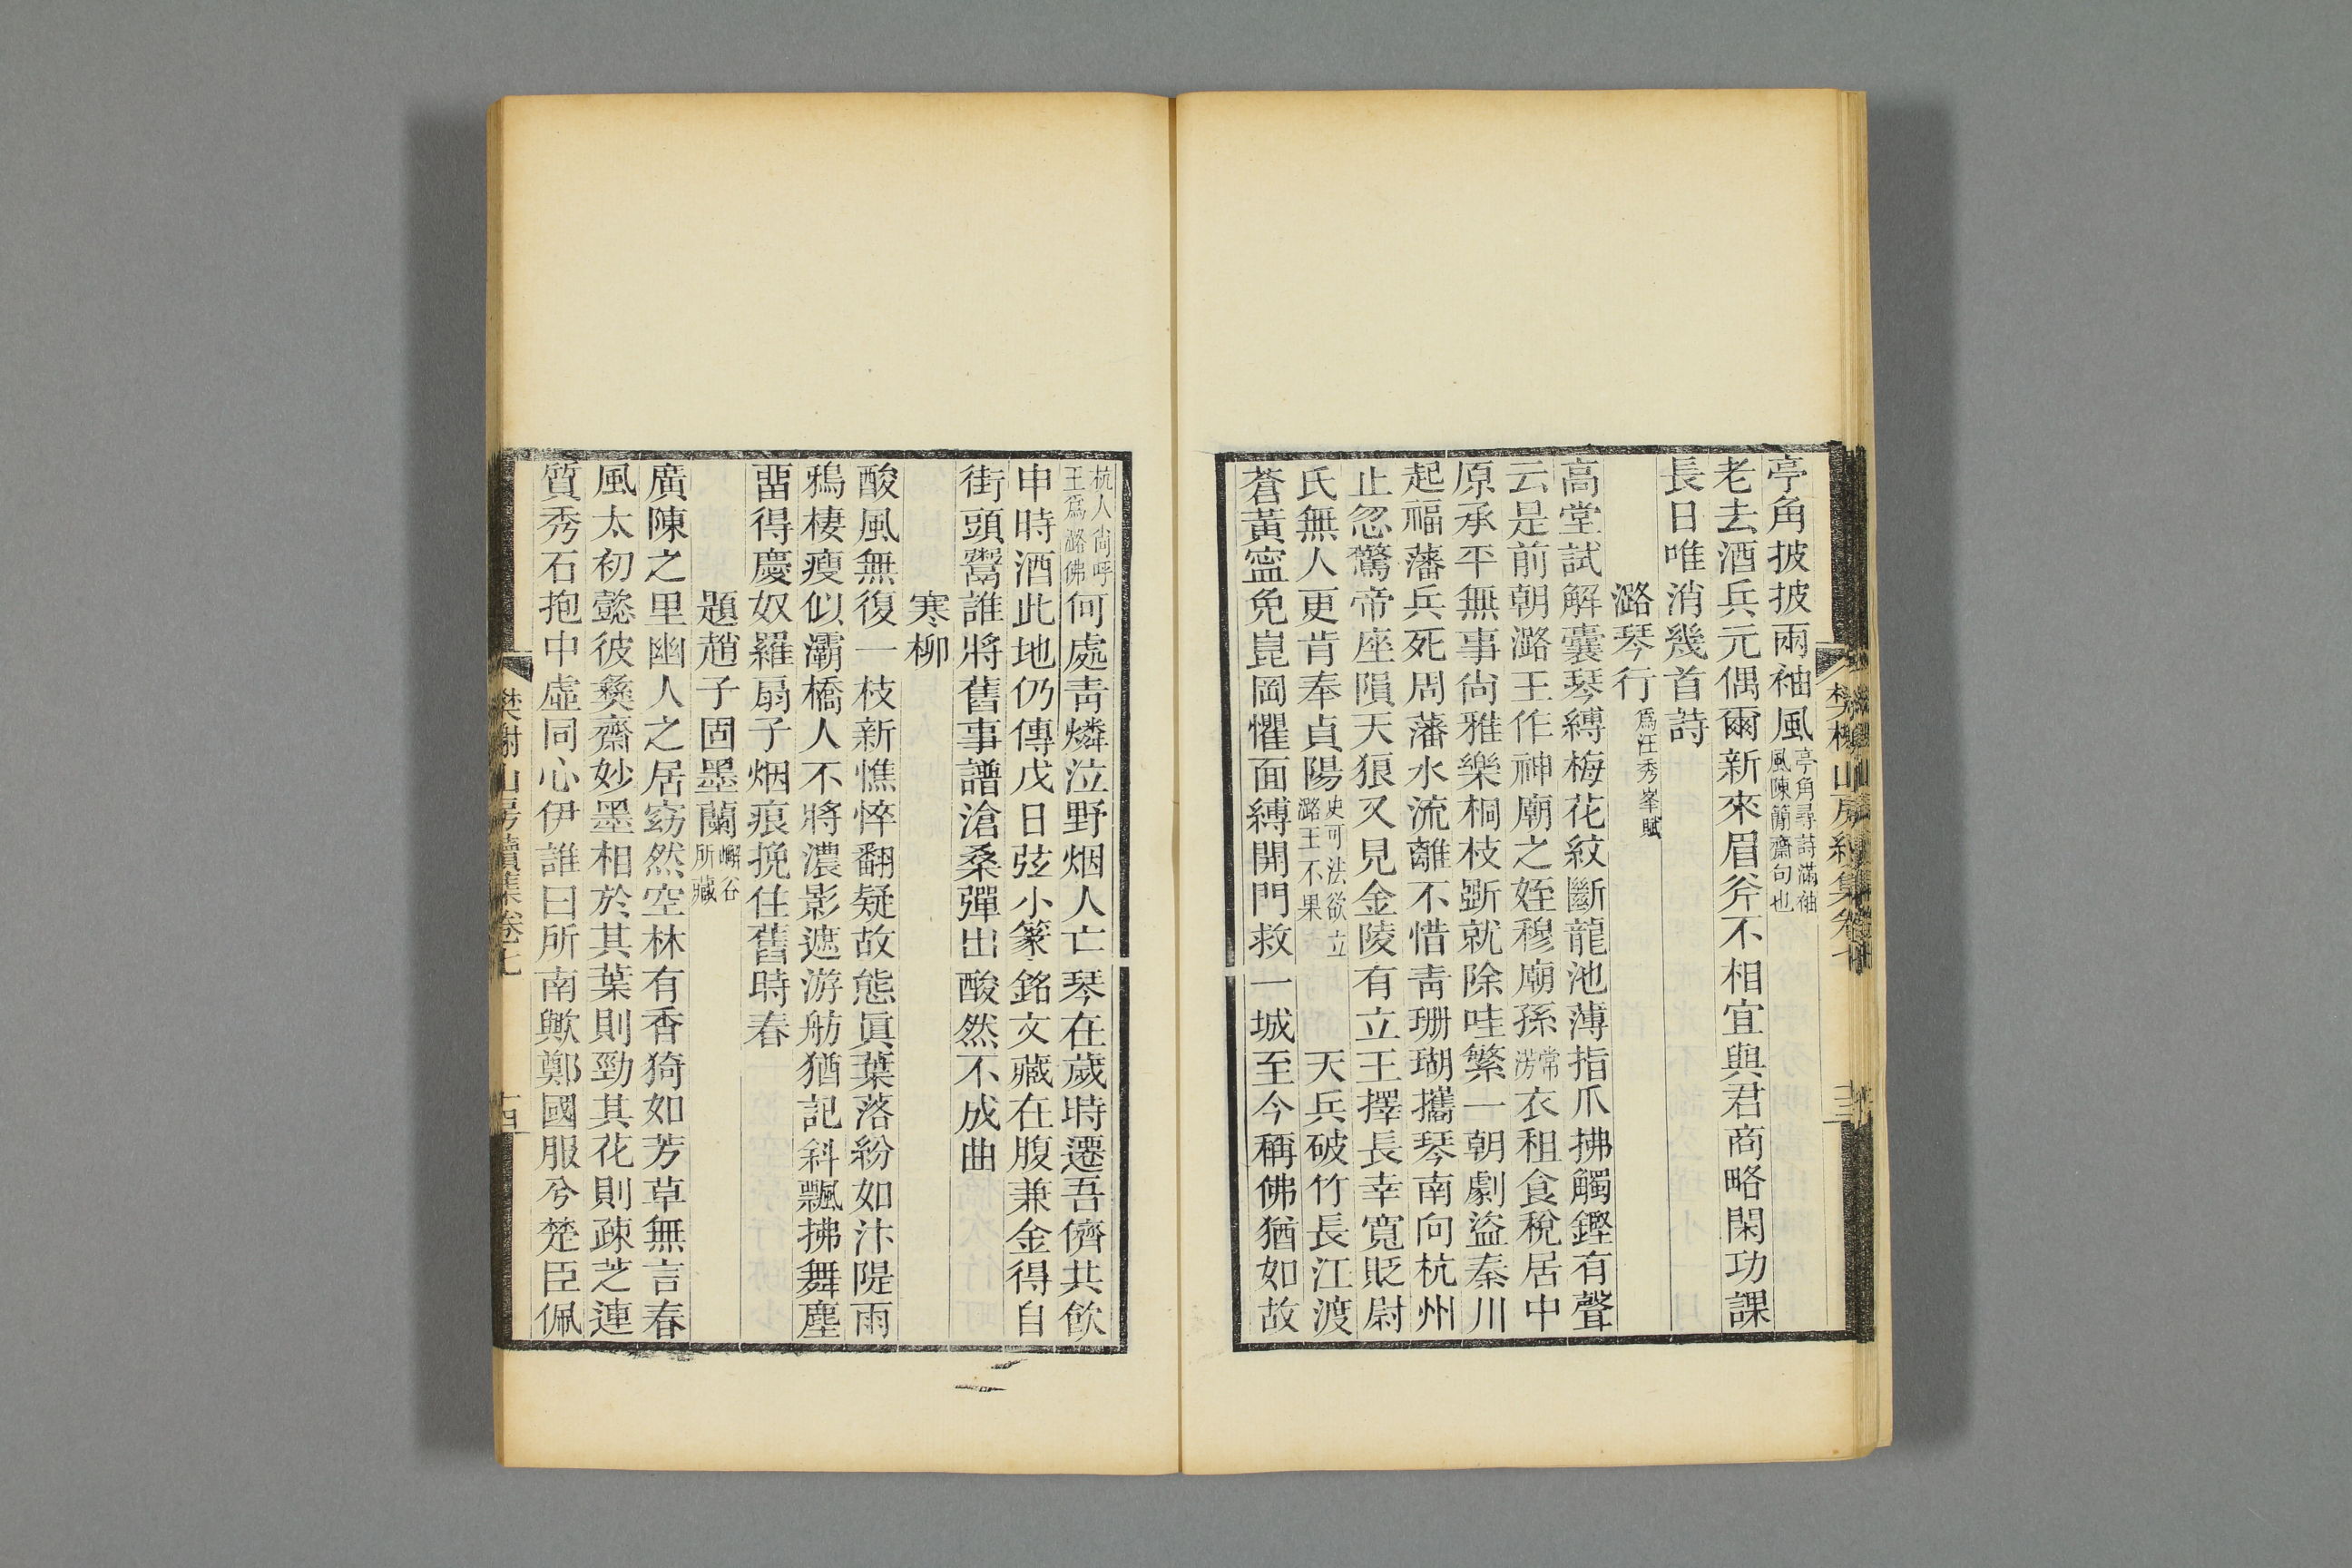 亭角披披兩袖風亭角尋詩滿袖風陳簡齋句也
老去酒兵元偶爾新來眉斧不相宜與君商略閑功課
長日唯消幾首詩
潞琴行為汪秀峯賦
高堂試解囊琴縛梅花紋斷龍池薄指爪拂觸鏗有聲
云是前朝潞王作神廟之姪穆廟孫常淓衣租食稅居中
原承平無事尙雅樂桐枝斲就除哇繁一朝劇盜秦川
起福藩兵死周藩水流離不惜靑珊瑚攜琴南向杭州
止忽驚帝座隕天狼又見金陵有立王擇長幸寬貶尉
氏無人更肯奉貞陽史可法欲立潞王不果天兵破竹長江渡
蒼黃寍免崑岡懼面縛開門救一城至今稱佛猶如故
杭人尙呼王爲潞佛何處靑燐泣野烟人亡琴在歲時遷吾儕共飮
申時酒此地仍傳戊日弦小篆銘文藏在腹兼金得自
街頭鬻誰將舊事譜滄桑彈出酸然不成曲
寒柳
酸風無復一枝新憔悴翻疑故態眞葉落紛如汴隄雨
鴉棲瘦似灞橋人不將濃影遮游舫猶記斜飄拂舞塵
畱得慶奴羅扇子烟痕挽住舊時春
題趙子固墨蘭嶰谷所藏
廣陳之里幽人之居窈然空林有香猗如芳草無言春
風太初懿彼彜齋妙墨相於其葉則勁其花則疎芝連
質秀石抱中虛同心伊誰曰所南歟鄭國服兮楚臣佩
樊榭山房續集卷七
十四